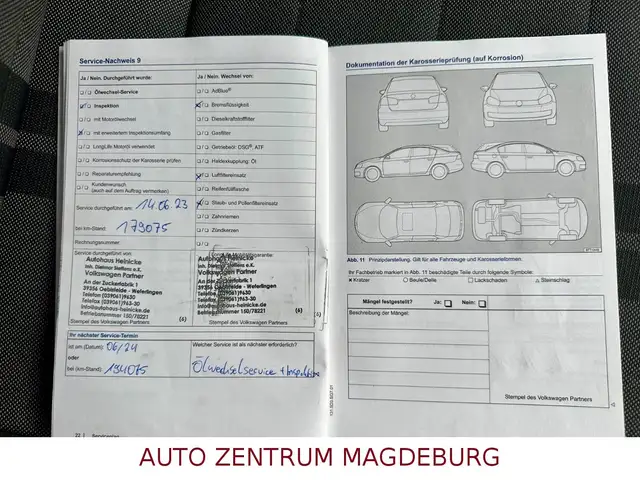 Service-Nachweis 9
Ja / Nein. Durchgeführt wurde:
Ölwechsel-Service
Inspektion
mit Motorölwechsel
mit erweitertem Inspektionsumfang
LongLife Motoröl verwendet
Korrosionsschutz der Karosserie prüfen
Reparaturempfehlung
Kundenwunsch
(auch auf dem Auftrag vermerken)
Service durchgeführt am: 14.06.23
bei km-Stand: 179075
Rechnungsnummer:
Ja / Nein. Wechsel von:
AdBlue®
Bremsflüssigkeit
Dieselkraftstofffilter
Gasfilter
Getriebeöl: DSG®, ATF
Haldexkupplung: Öl
Luftfiltereinsatz
Reifenfüllflasche
Staub- und Pollenfiltereinsatz
Zahnriemen
Zündkerzen
Service durchgeführt von:
Autohaus Heinicke
inh. Dietmar Steffens e.K.
Volkswagen Partner
An der Zuckerfabrik 1
39356 Oebisfelde - Weferlingen
Telefon (039061)9630
Telefax (039061)963-30
info@autohaus-heinicke.de
Betriebsnummer 150/78221
Stempel des Volkswagen Partners
Autohaus Heinicke
inh. Dietmar Steffens e.K.
Volkswagen Partner
An der Zuckerfabrik 1
39356 Oebisfelde - Weferlingen
Stempel des Volkswagen Partners
Ihr nächster Service-Termin
ist am (Datum): 06/24
oder
bei (km-Stand): 194075
Welcher Service ist als nächster erforderlich?
Ölwechselservice + Inspektion
22
Dokumentation der Karosserieprüfung (auf Korrosion)
Abb. 11 Prinzipdarstellung. Gilt für alle Fahrzeuge und Karosserieformen.
Ihr Fachbetrieb markiert in Abb. 11 beschädigte Teile durch folgende Symbole:
× Kratzer ○ Beule/Delle □ Lackschaden △ Steinschlag
Mängel festgestellt? Ja: Nein:
Beschreibung der Mängel:
Stempel des Volkswagen Partners
AUTO ZENTRUM MAGDEBURG